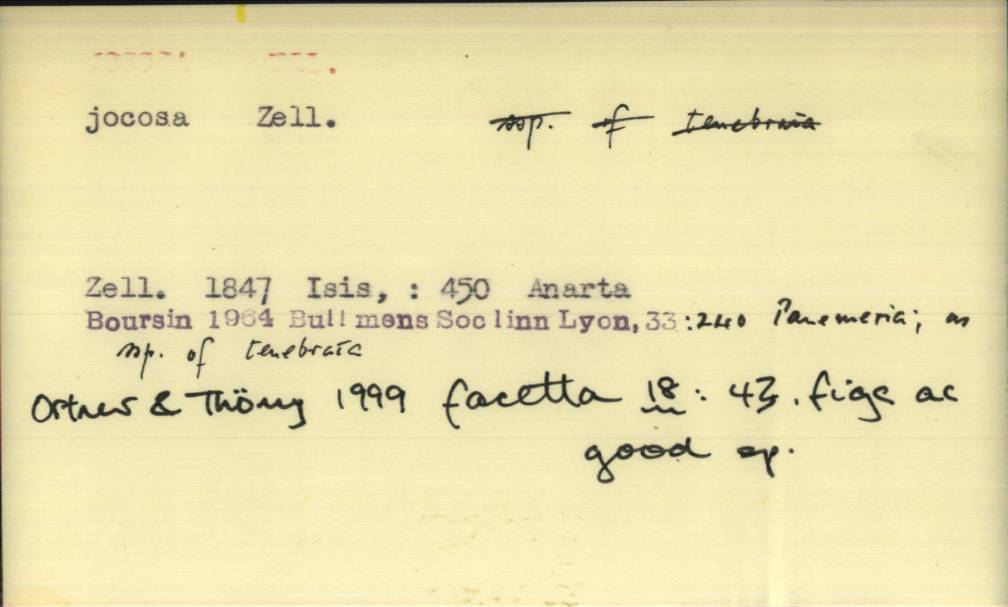 jocosa Zell. ssp. of tenebrata
Zell. 1847 Isis, : 450 Anarta
Boursin 1964 Bull mens Soc linn Lyon, 33 :240 Panemeria; as
ssp. of tenebrata
Ortner & Thöny 1999 facetta 18 : 43. figs as
good sp.